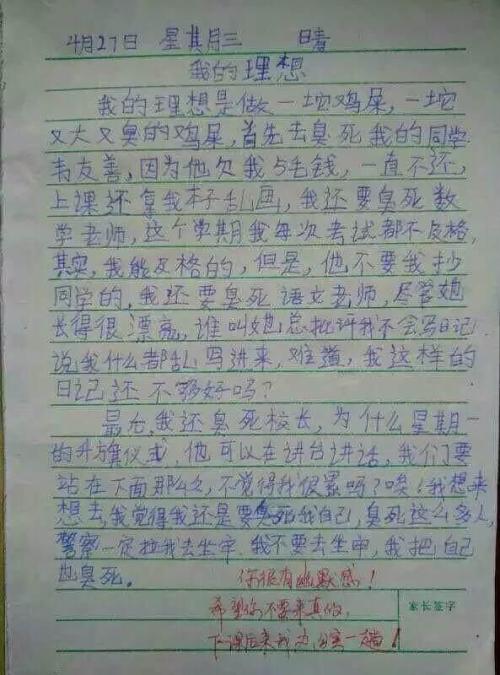 4月27日 星其月三 晴
我的理想
我的理想是做一坨鸡屎，一坨
又大又臭的鸡屎，首先去臭死我的同学
韦友善，因为他欠我5毛钱，一直不还，
上课还拿我本子乱画，我还要臭死数
学老师，这个学期我每次考试都不及格，
其实，我能及格的，但是，他不要我抄
同学的，我还要臭死语文老师，尽管她
长得很漂亮，谁叫她总批评我不会写日记
说我什么都乱写进来，难道，我这样的
日记还不够好吗？
最后，我还臭死校长，为什么星期一
的升旗仪式，他可以在讲台讲话，我们要
站在下面那么久，不觉得我很累吗？唉！我想来
想去，我觉得我还是要臭死我自己，臭死这么多人，
警察一定拉我去坐牢，我不要去坐牢，我把自己
也臭死。
你很有幽默感！
希望你不要来真的，
下课后来我办公室一趟！
家长签字